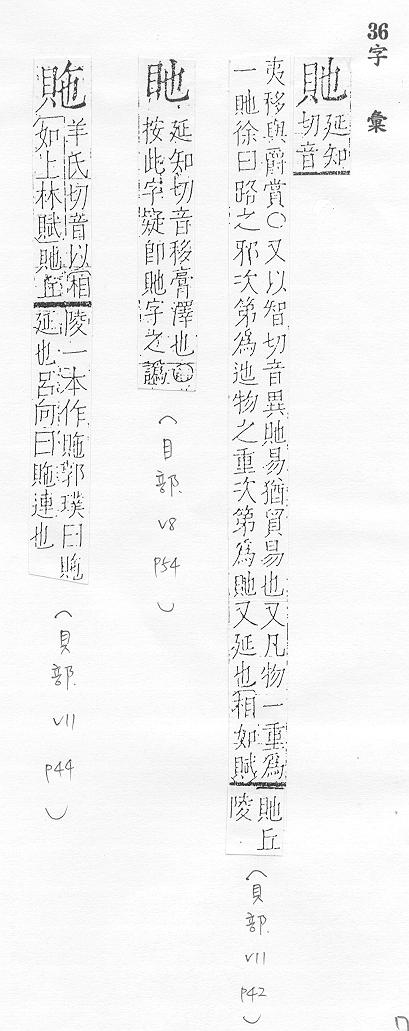 36 字 彙
貤
延知
切音
夷移與爵賞○又以智切音異貤易猶貿易也又凡物一重爲
一貤徐曰路之邪次第爲迆物之重次第爲貤又延也相如賦
貤丘
陵
(貝部 V11 P42)
延知切音移膏澤也◎
按此字疑卽貤字之譌
(目部 V8 P54)
羊氏切音以相
如上林賦貤丘
陵一本作 郭璞曰
延也呂向曰 連也
(貝部 V11 P44)